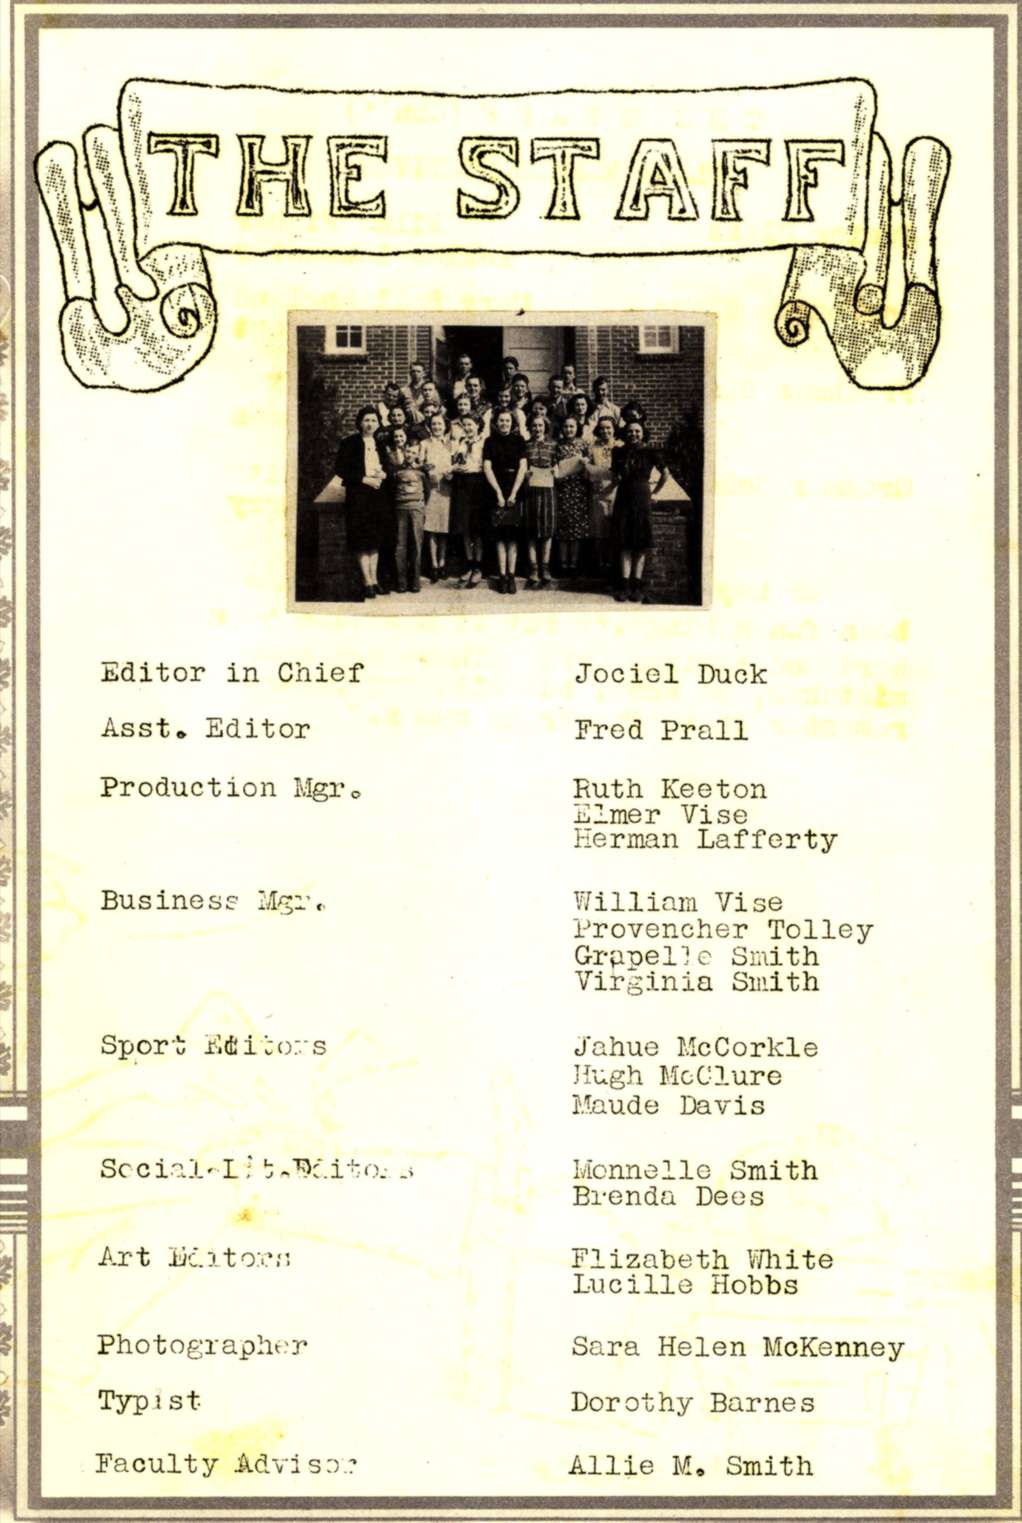 THE STAFF
Editor in Chief Jociel Duck
Asst. Editor Fred Prall
Production Mgr. Ruth Keeton
Elmer Vise
Herman Lafferty
Business Mgr. William Vise
Provencher Tolley
Grapelle Smith
Virginia Smith
Sport Editors Jahue McCorkle
Hugh McClure
Maude Davis
Social-Lit.Editors Monnelle Smith
Brenda Dees
Art Editors Elizabeth White
Lucille Hobbs
Photographer Sara Helen McKenney
Typist Dorothy Barnes
Faculty Advisor Allie M. Smith